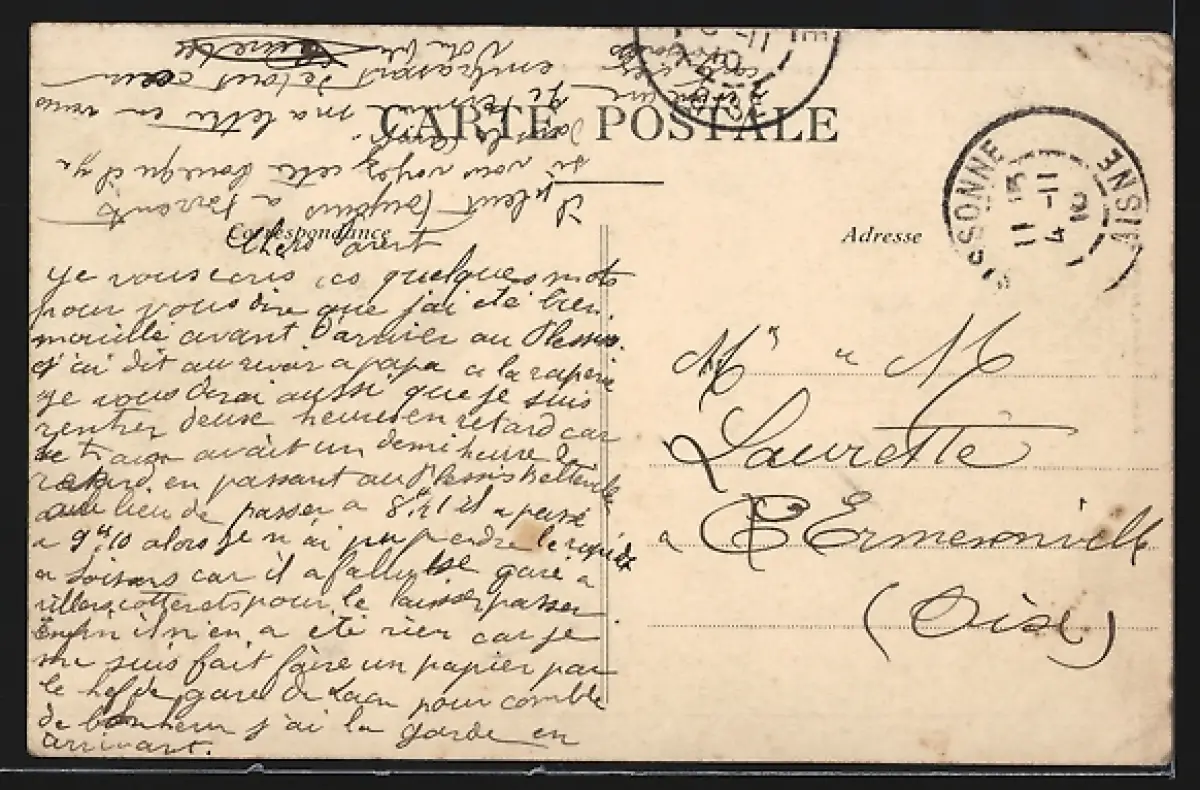 CARTE POSTALE
Correspondance
Adresse
SISSONNE
AISNE
11 15
4 -11
10
Chers parent
Je vous ecris ces quelques mots
pour vous dire que j'ai été bien
mouillé avant d'arriver au Plessis.
j'ai dit au revoir a papa a la raperie
je vous dirai aussi que je suis
rentrer deux heures en retard car
le train avait un demi heure de
retard en passant au Plessis Belleville
au lieu de passer a 8h21 il a passé
a 9h10 alors je n'ai pu prendre le rapide
a Soissons car il a fallu se garé a
villers cotterets pour le laisser passer
Enfin il n'en a été rien car je
me suis fait faire un papier par
le chef de gare de Laon pour comble
de bonheur j'ai la garde en
arrivant.
il pleut toujours a torrents
si vous voyez cette
je termine ma lettre en vous
embrassant de tout coeur
Votre fils
Mr et M
Laurette
a Ermenonville
(Oise)